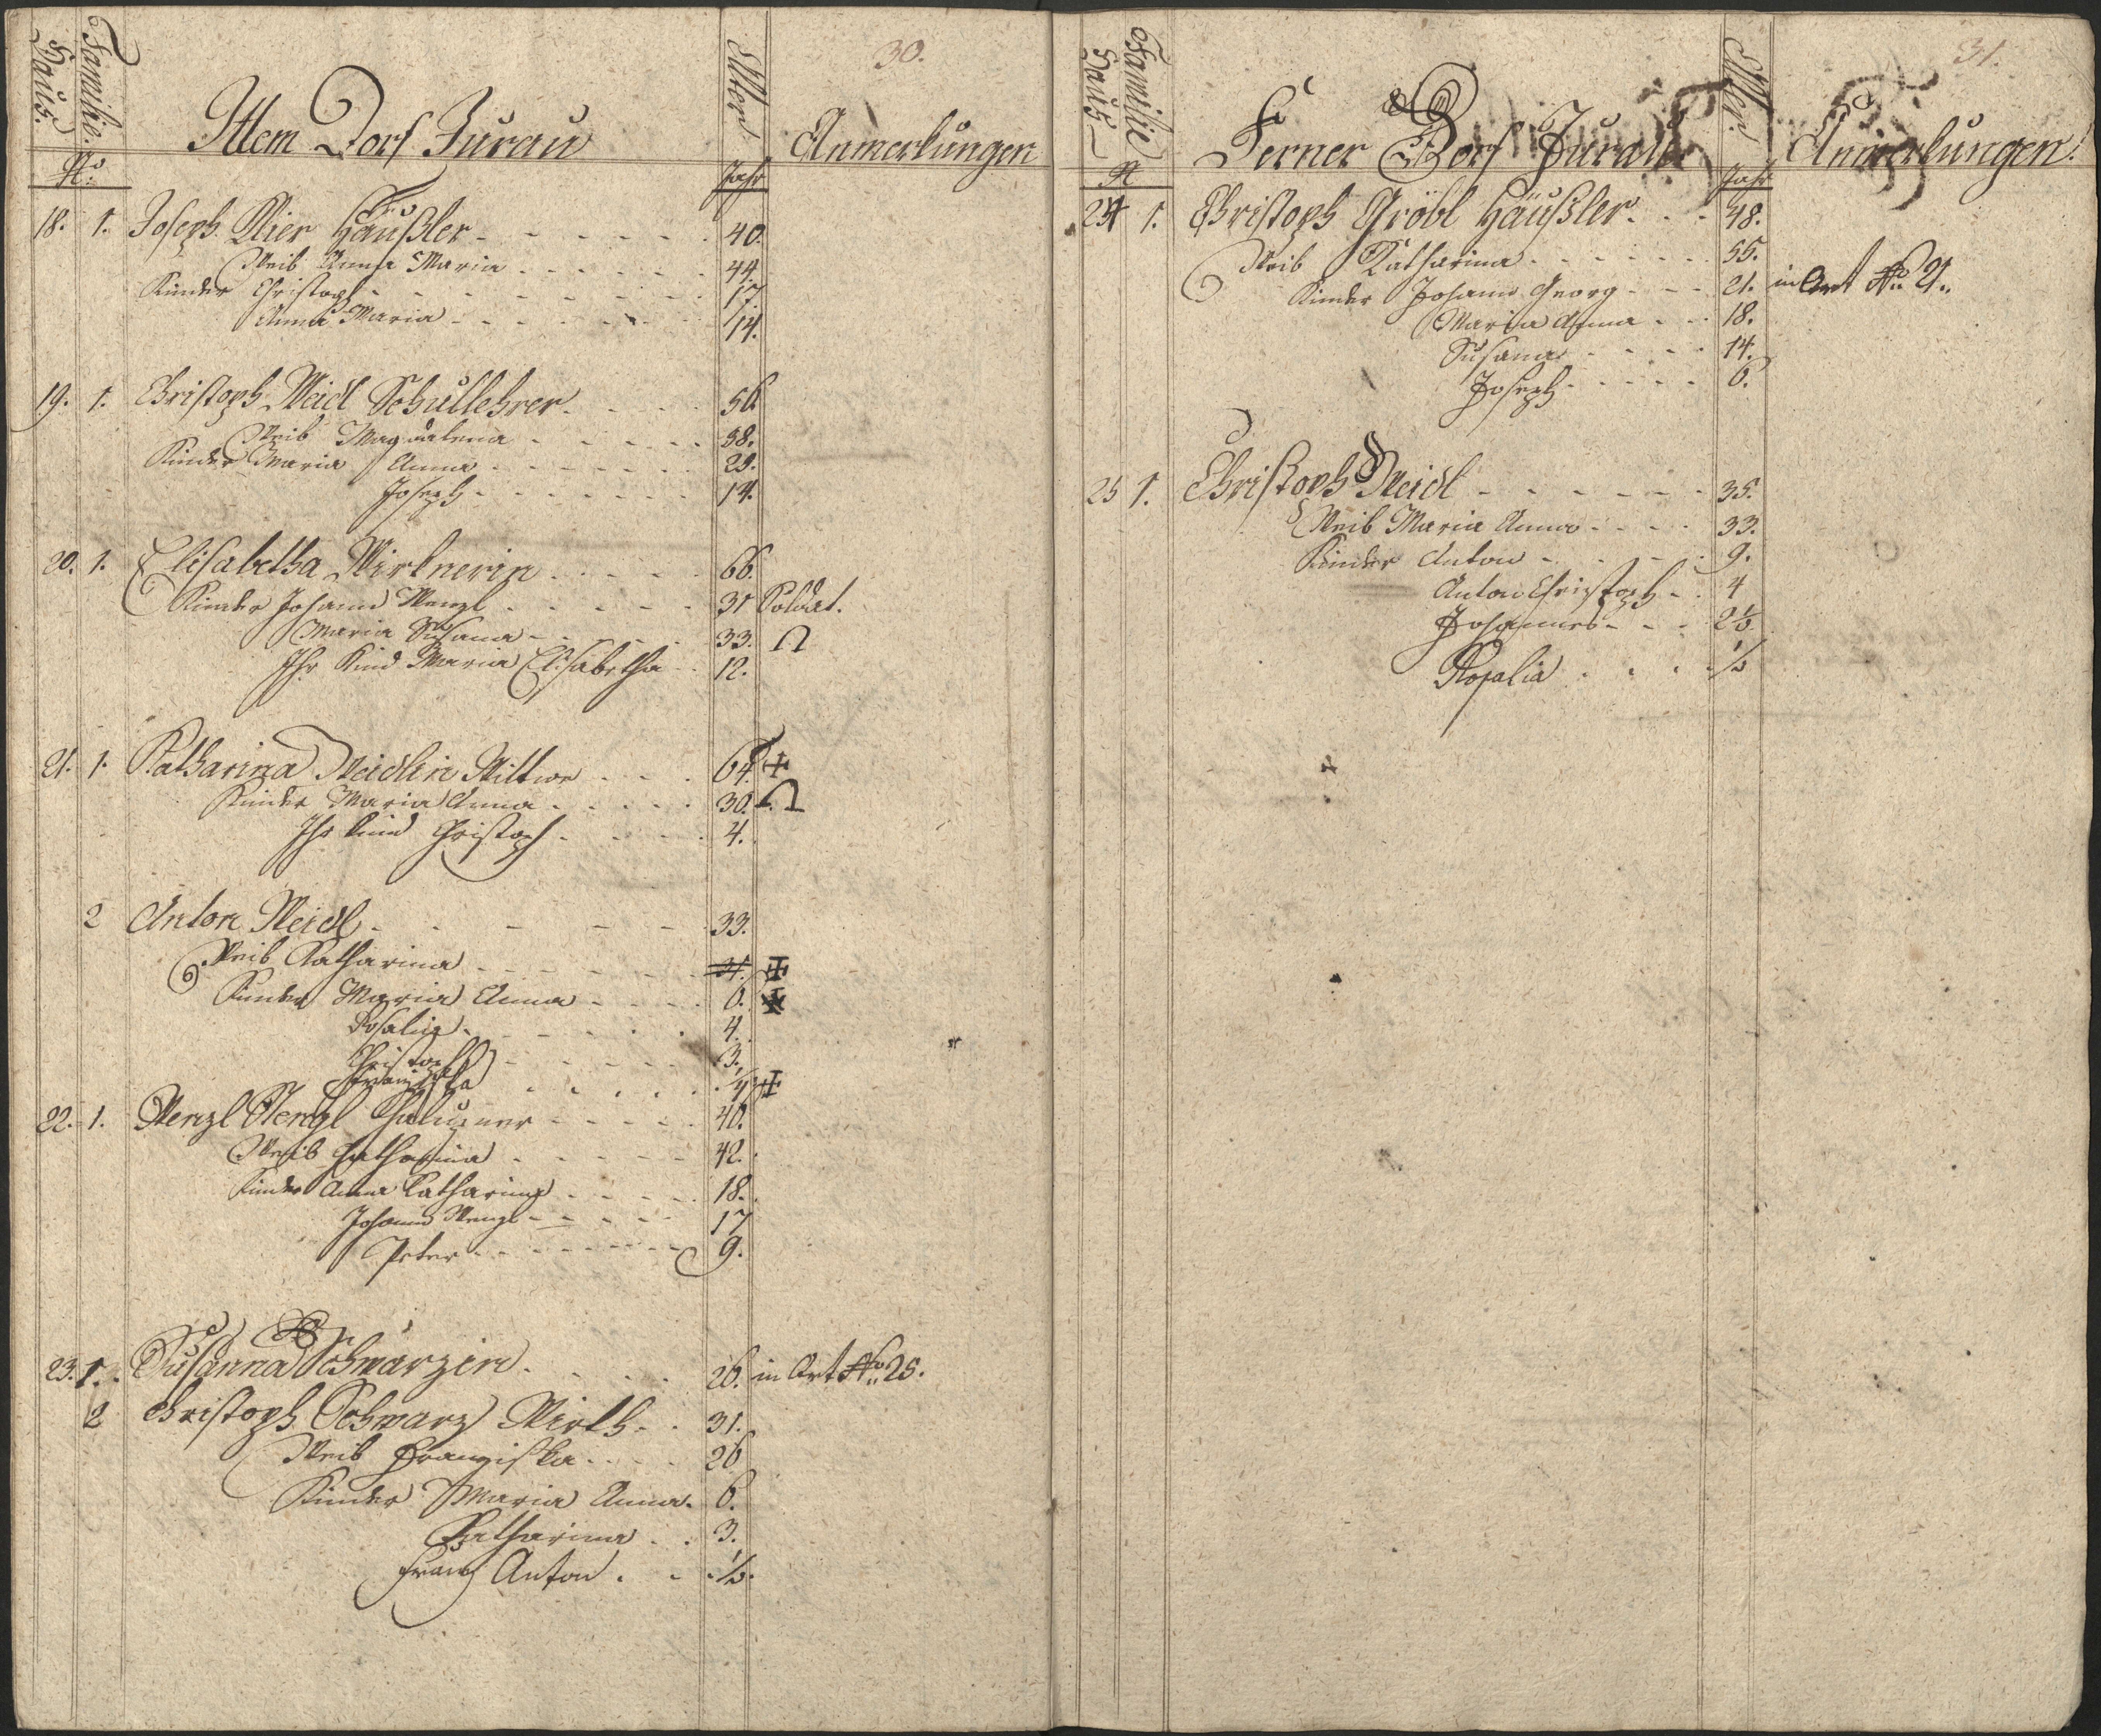 30.
Haus.
Familie.
Ittem Dorf Jurau
Alter
Anmerkungen
No
Jahr
18. 1. Joseph Häußler 40.
Weib Anna Maria 44.
Kinder Christoph 17.
Anna Maria 14.
19. 1. Christoph Weidl Schullehrer 56
Weib Magdalena 58.
Kinder Maria Anna 29.
Joseph 14.
20. 1. Elisabetha Wirknerin 66.
Kinder Johann Wenzl 31 Soldat.
Maria Susana 33.
Ihr Kind Maria Elisabetha 12.
21. 1. Katharina Weidlin Wittwe 64. +
Kinder Maria Anna 30.
Ihr Kind Christoph 4.
2 Anton Weidl 33.
Weib Katharina 31. +
Kinder Maria Anna 6. +
Rosalia 4.
Christoph 3.
Franziska +
22. 1. Wenzl Chalupner 40.
Weib Catharina 42.
Kinder Anna Catharina 18.
Johann Wenzl 17
Peter 9.
23. 1. Susanna Schwarzin 26. in Art No 25.
2 Christoph Schwarz Wirth 31.
Weib Franziska 26
Kinder Maria Anna 6.
Katharina 3.
Franz Anton ½.
31.
Haus
Familie
Ferner Dorf Jurau
Alter.
Anmerkungen.
No
Jahr
24 1. Christoph Gröbl Häußler 48.
Weib Katharina 55.
Kinder Johann Georg 21. in Art No 21.
Maria Anna 18.
Susana 14.
Joseph 6.
25 1. Christoph Weidl 35.
Weib Maria Anna 33.
Kinder Anton 9.
Anton Christoph 4
Johannes 2½
Rosalia ½